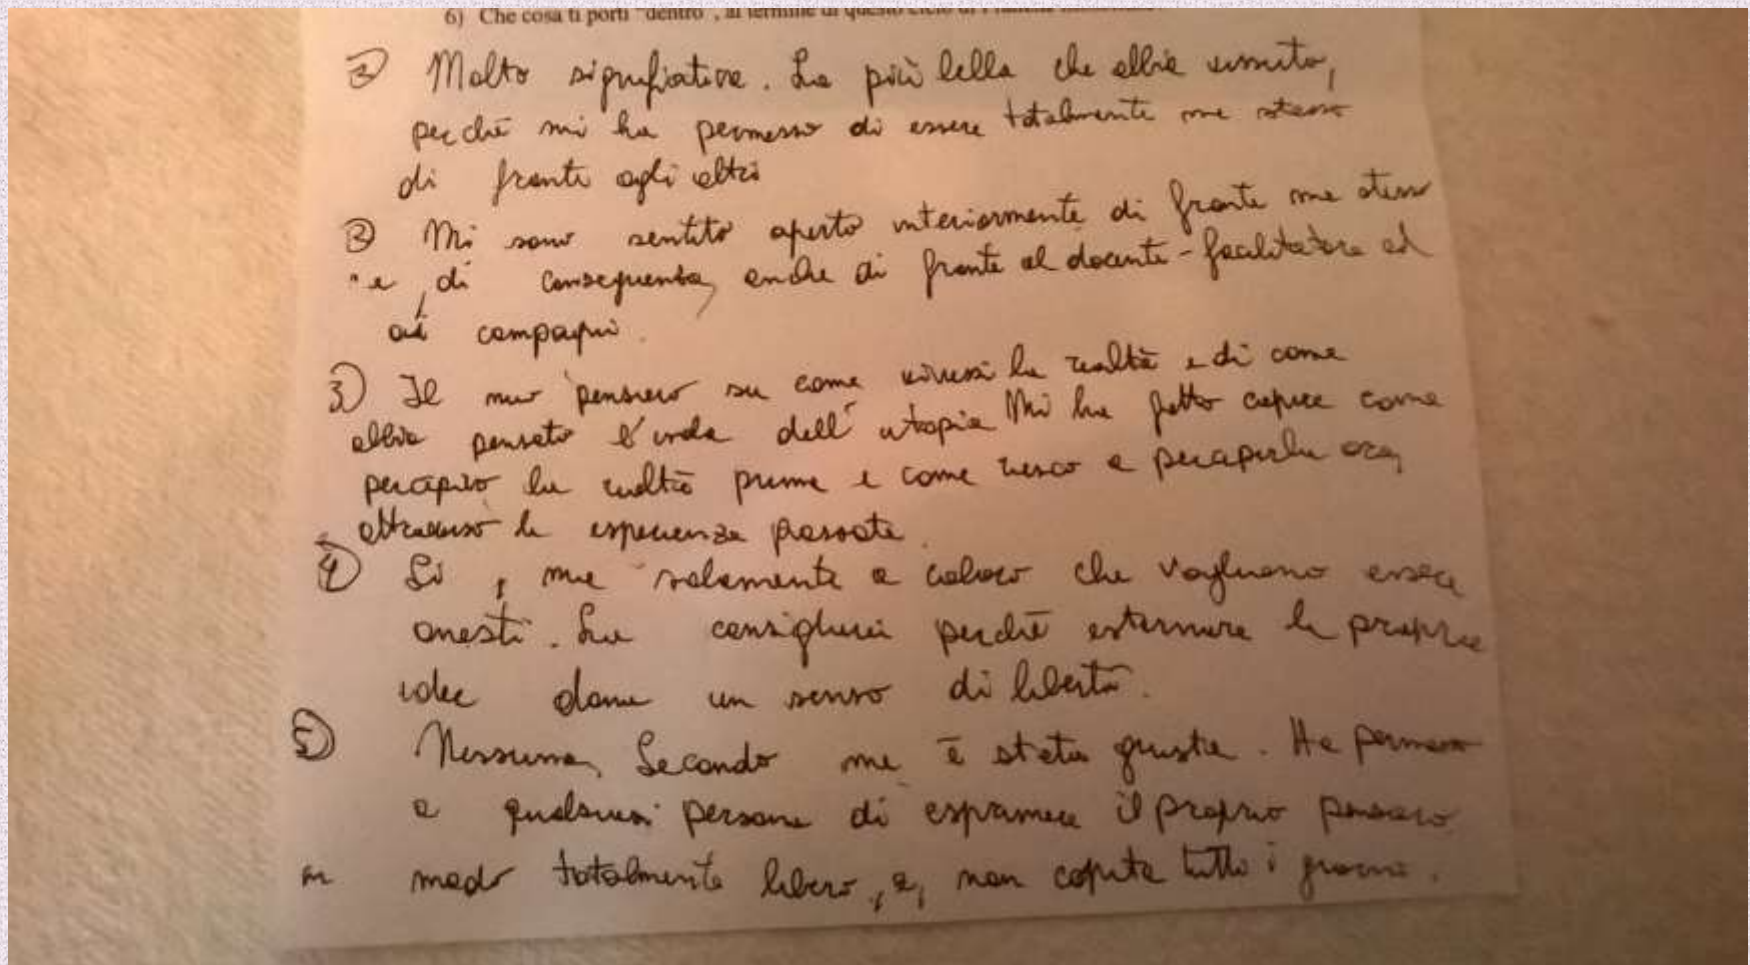 6) Che cosa ti porti "dentro", al termine di questo ciclo di
② Molto significativa. La più bella che abbia vissuto,
perché mi ha permesso di essere totalmente me stesso
di fronte agli altri
② Mi sono sentito aperto interiormente di fronte me stesso
e, di conseguenza, anche di fronte al docente-facilitatore ed
ai compagni.
3) Il mio pensiero su come vivessi la realtà e di come
abbia pensato l'onda dell'utopia Mi ha fatto capire come
percepivo la realtà prima e come riesco a percepirla ora,
attraverso le esperienza passate.
④ Si, ma solamente a coloro che vogliono essere
onesti. La consiglierei perché esternare le proprie
idee dona un senso di libertà.
⑤ Nessuna, Secondo me è stata giusta. Ha permesso
a qualsiasi persona di esprimere il proprio pensiero
in modo totalmente libero, e, non capita tutto i giorni.